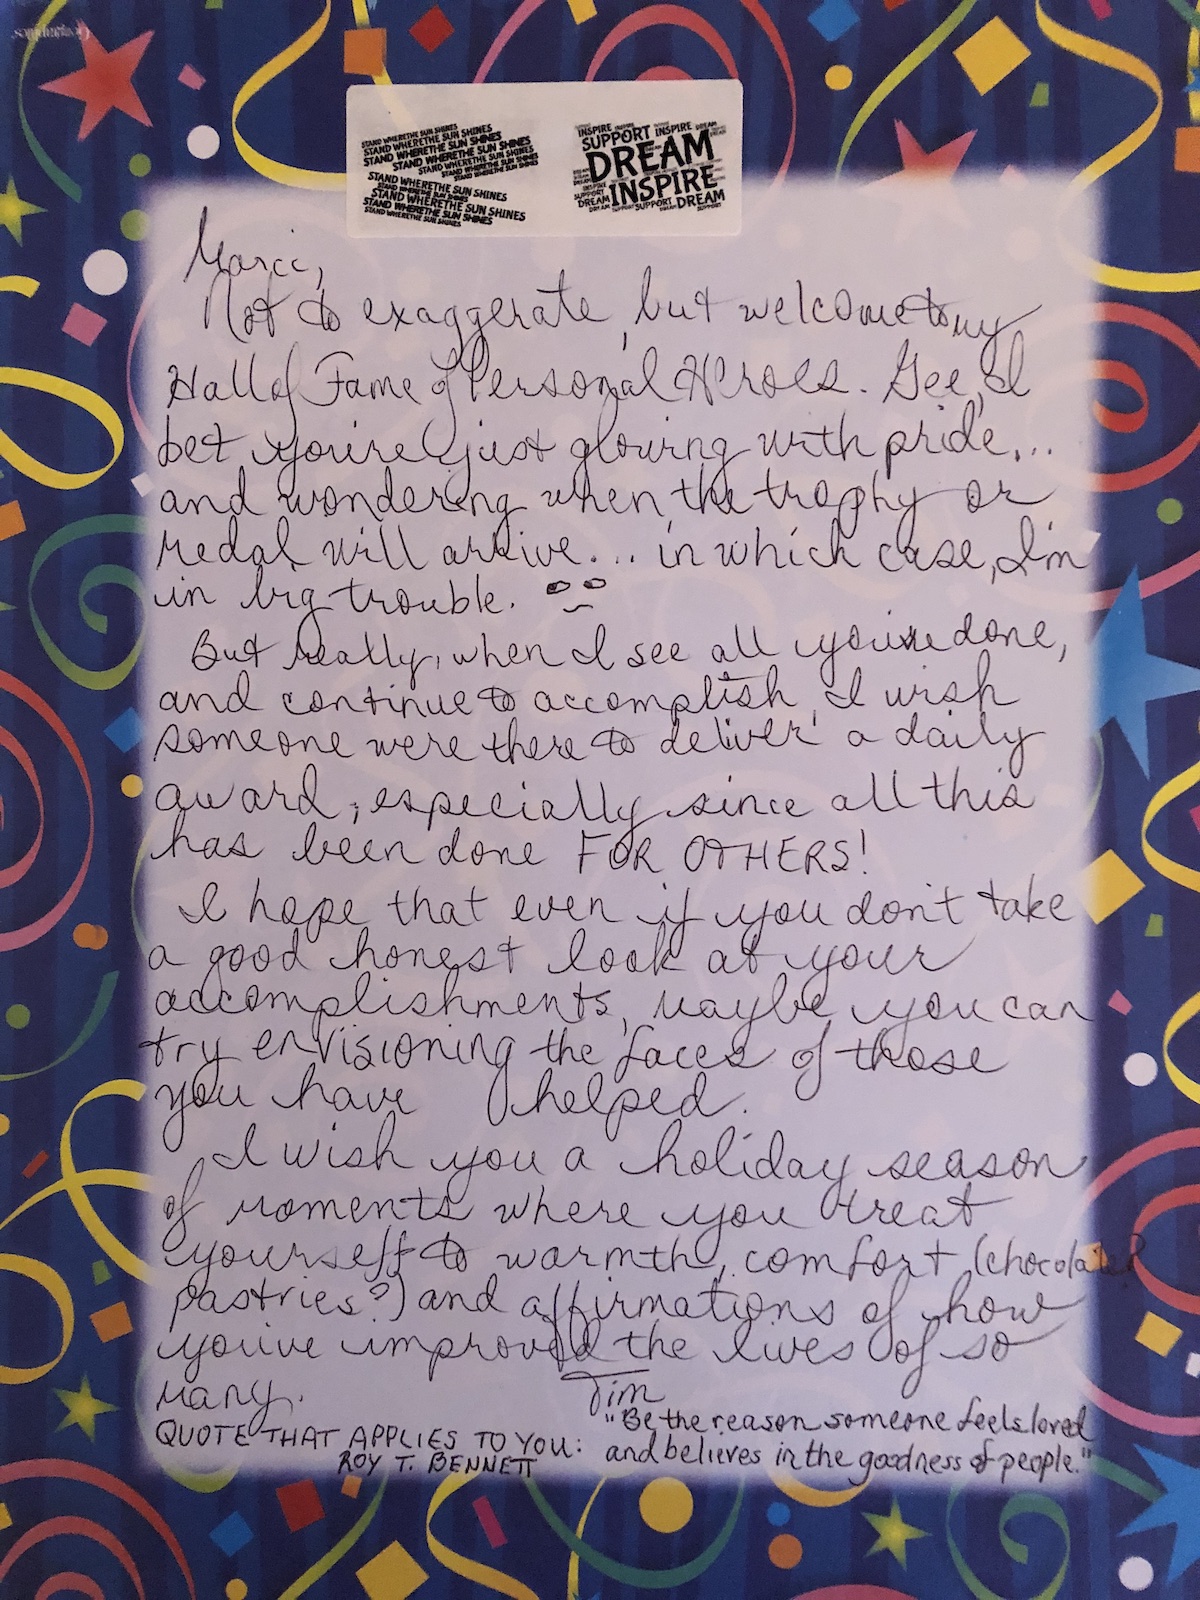 Geographics
STAND WHERETHE SUN SHINES
STAND WHERETHE SUN SHINES
STAND WHERETHE SUN SHINES
STAND WHERETHE SUN SHINES
STAND WHERETHE SUN SHINES
STAND WHERETHE SUN SHINES
STAND WHERETHE SUN SHINES
STAND WHERETHE SUN SHINES
STAND WHERETHE SUN SHINES
STAND WHERETHE SUN SHINES
STAND WHERETHE SUN SHINES
STAND WHERETHE SUN SHINES
INSPIRE INSPIRE
SUPPORT INSPIRE DREAM
DREAM
INSPIRE
SUPPORT
DREAM SUPPORT DREAM
DREAM SUPPORT
Marci,
Not to exaggerate, but welcome to my
Hall of Fame of Personal Heroes. Gee, I
bet you're just glowing with pride...
and wondering when the trophy or
medal will arrive... in which case, I'm
in big trouble.
But really, when I see all you've done,
and continue to accomplish, I wish
someone were there to deliver a daily
award, especially since all this
has been done FOR OTHERS!
I hope that even if you don't take
a good honest look at your
accomplishments, maybe you can
try envisioning the faces of those
you have helped.
I wish you a holiday season
of moments where you treat
yourself to warmth, comfort (chocolate?
pastries?) and affirmations of how
you've improved the lives of so
many. Tim
QUOTE THAT APPLIES TO YOU: "Be the reason someone feels loved
ROY T. BENNETT and believes in the goodness of people."